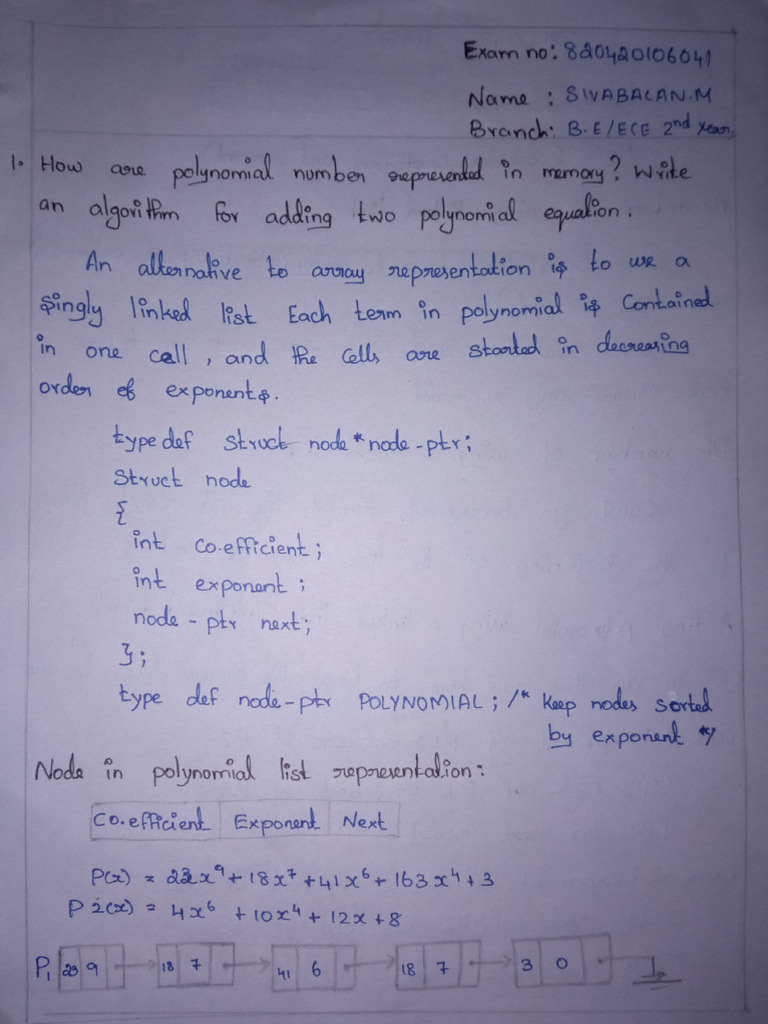 Exam no: 820420106041
Name : SIVABALAN.M
Branch: B.E/ECE 2nd Year.
1. How are polynomial number represented in memory? Write
an algorithm for adding two polynomial equation.
An alternative to array representation is to use a
singly linked list Each term in polynomial is Contained
in one cell, and the cells are started in decreasing
order of exponents.
typedef struct node *node-ptr;
Struct node
{
int co.efficient;
int exponent;
node-ptr next;
};
type def node-ptr POLYNOMIAL; /* Keep nodes sorted
by exponent */
Node in polynomial list representation:
Co.efficient Exponent Next
P(x) = 23x⁹ + 18x⁷ + 41x⁶ + 163x⁴ + 3
P2(x) = 4x⁶ + 10x⁴ + 12x + 8
P₁ 23 9 18 7 41 6 18 7 3 0